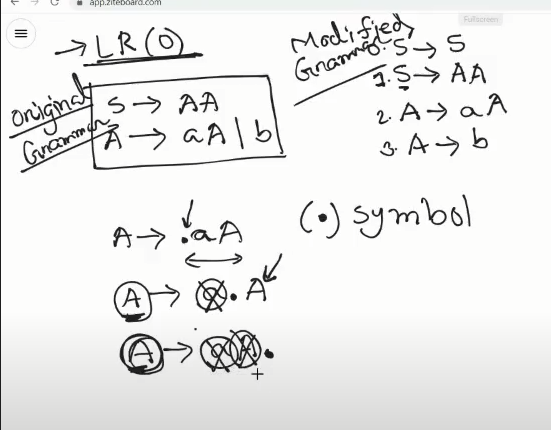 app.ziteboard.com
Fullscreen
→ LR(0)
Original
Grammar
S → AA
A → aA | b
Modified
Grammar
0. S → S
1. S → AA
2. A → aA
3. A → b
A → .aA
(.) symbol
A → a.A
A → aA.